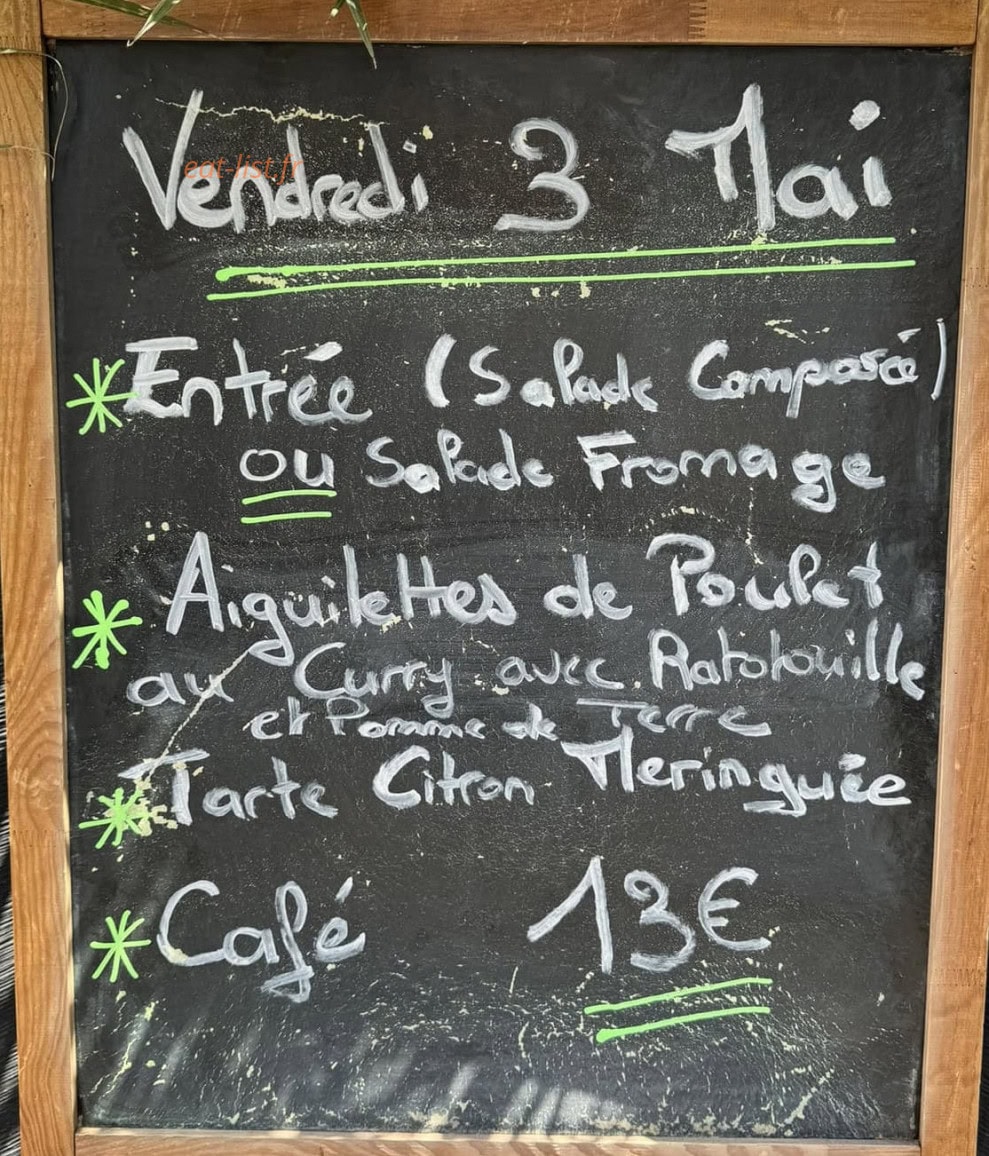 Vendredi 3 Mai
eat-list.fr
Entrée (Salade Composée)
ou Salade Fromage
Aiguilettes de Poulet
au Curry avec Ratotouille
et Pomme de Terre
Tarte Citron Meringuée
Café 13€